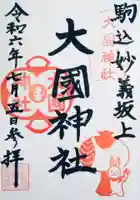 駒込妙義坂上
大國神社
令和六年七月五日参拝